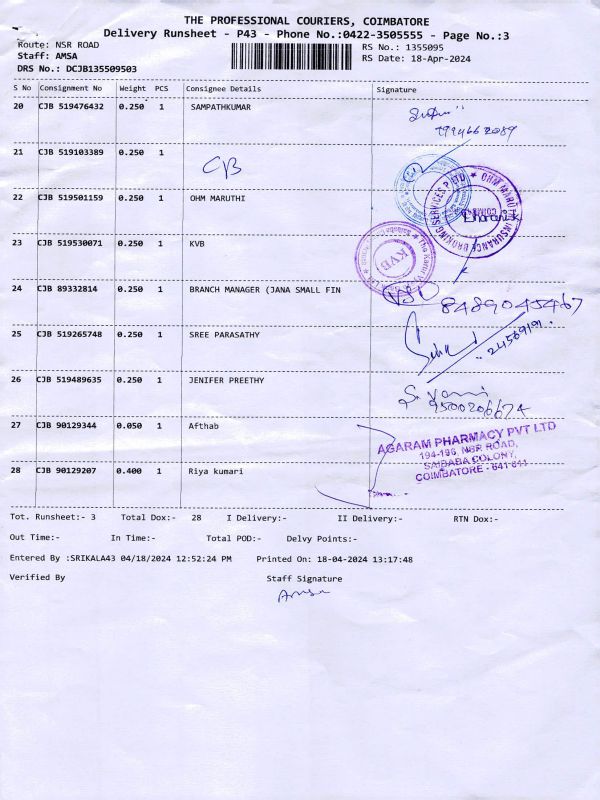 THE PROFESSIONAL COURIERS, COIMBATORE
Delivery Runsheet - P43 - Phone No.:0422-3505555 - Page No.:3
Route: NSR ROAD
RS No.: 1355095
Staff: AMSA
RS Date: 18-Apr-2024
DRS No.: DCJB135509503
S No Consignment No Weight PCS Consignee Details Signature
20 CJB 519476432 0.250 1 SAMPATHKUMAR
21 CJB 519103389 0.250 1
CJB
22 CJB 519501159 0.250 1 OHM MARUTHI
OHM MARUTHI INSURANCE BROKING SERVICES P LTD
23 CJB 519530071 0.250 1 KVB
KVB
24 CJB 89332814 0.250 1 BRANCH MANAGER (JANA SMALL FIN
8489045467
25 CJB 519265748 0.250 1 SREE PARASATHY
26 CJB 519489635 0.250 1 JENIFER PREETHY
9500206674
27 CJB 90129344 0.050 1 Afthab
AGARAM PHARMACY PVT LTD
194-196, NSR ROAD,
SAIBABA COLONY,
COIMBATORE - 641 011
28 CJB 90129207 0.400 1 Riya kumari
Tot. Runsheet:- 3 Total Dox:- 28 I Delivery:- II Delivery:- RTN Dox:-
Out Time:- In Time:- Total POD:- Delvy Points:-
Entered By :SRIKALA43 04/18/2024 12:52:24 PM Printed On: 18-04-2024 13:17:48
Verified By Staff Signature
Amsa